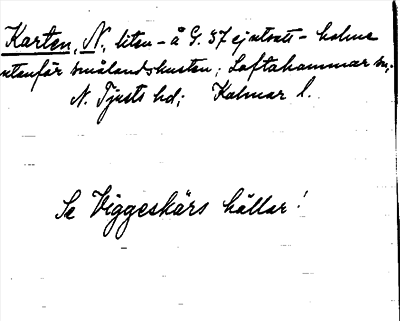 Karten, N., liten – å G. 37 ej utsatt – holme
utanför smålandskusten; Loftahammar sn;
N. Tjusts hd; Kalmar l.
Se Viggeskärs hällar!